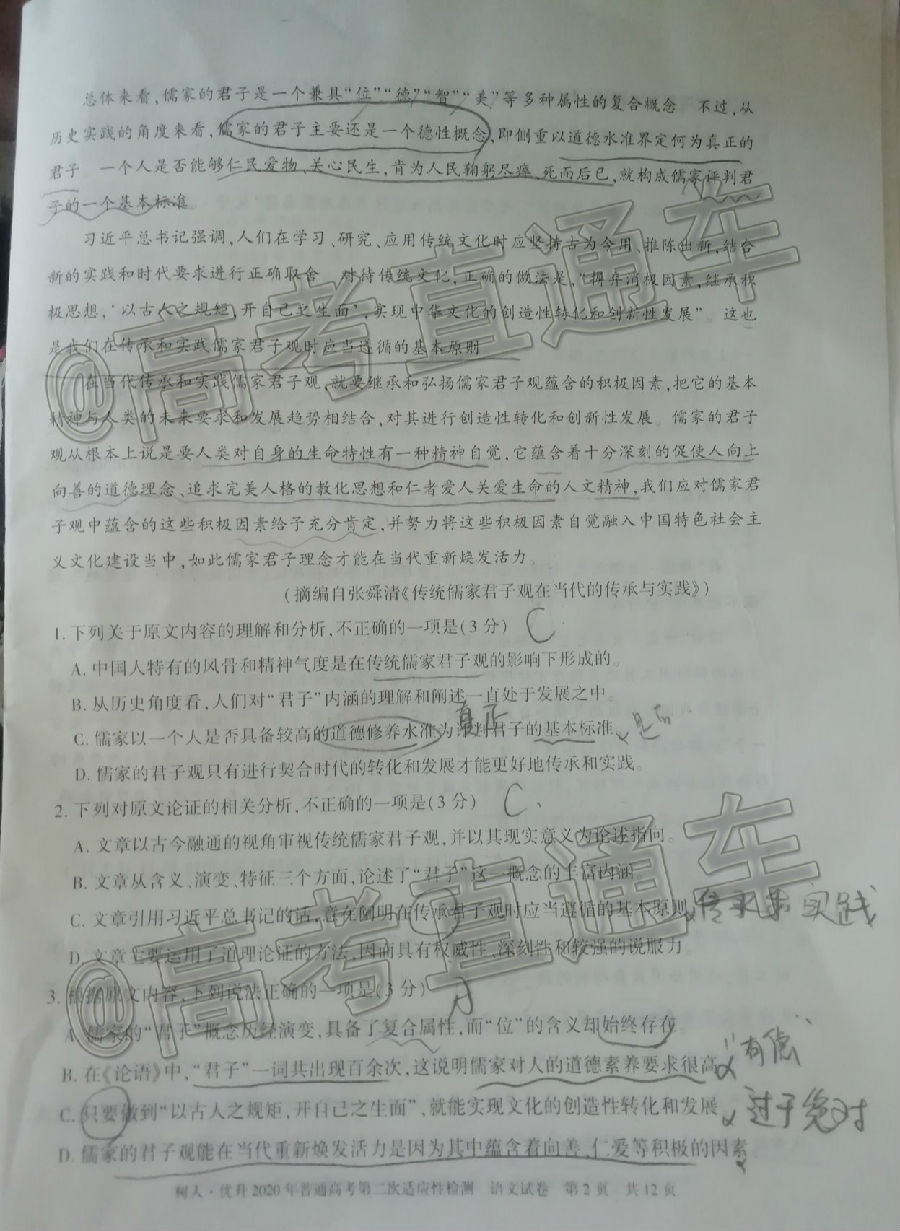 总体来看,儒家的君子是一个兼具“位”“德”“智”“美”等多种属性的复合概念 不过,从
历史实践的角度来看,儒家的君子主要还是一个德性概念,即侧重以道德水准界定何为真正的
君子 一个人是否能够仁民爱物、关心民生,肯为人民鞠躬尽瘁、死而后已,就构成儒家评判君
子的一个基本标准
习近平总书记强调,人们在学习、研究、应用传统文化时应坚持古为今用、推陈出新,结合
新的实践和时代要求进行正确取舍 对待传统文化,正确的做法是,“摒弃消极因素,继承积
极思想,‘以古人之规矩,开自己之生面’,实现中华文化的创造性转化和创新性发展” 这也
是我们在传承和实践儒家君子观时应当遵循的基本原则
在当代传承和实践儒家君子观,就要继承和弘扬儒家君子观蕴含的积极因素,把它的基本
精神与人类的未来要求和发展趋势相结合,对其进行创造性转化和创新性发展 儒家的君子
观从根本上说是要人类对自身的生命特性有一种精神自觉,它蕴含着十分深刻的促使人向上
向善的道德理念、追求完美人格的教化思想和仁者爱人关爱生命的人文精神,我们应对儒家君
子观中蕴含的这些积极因素给予充分肯定,并努力将这些积极因素自觉融入中国特色社会主
义文化建设当中,如此儒家君子理念才能在当代重新焕发活力
(摘编自张舜清《传统儒家君子观在当代的传承与实践》)
1. 下列关于原文内容的理解和分析,不正确的一项是(3分) C
A. 中国人特有的风骨和精神气度是在传统儒家君子观的影响下形成的。
B. 从历史角度看,人们对“君子”内涵的理解和阐述一直处于发展之中。
真正
C. 儒家以一个人是否具备较高的道德修养水准为评判君子的基本标准
D. 儒家的君子观只有进行契合时代的转化和发展才能更好地传承和实践。
2. 下列对原文论证的相关分析,不正确的一项是(3分) C
A. 文章以古今融通的视角审视传统儒家君子观,并以其现实意义为论述指向。
B. 文章从含义、演变、特征三个方面,论述了“君子”这一概念的丰富内涵
C. 文章引用习近平总书记的话,意在阐明在传承君子观时应当遵循的基本原则 传承和实践
D. 文章主要运用了道理论证的方法,因而具有权威性、深刻性和较强的说服力
3. 根据原文内容,下列说法正确的一项是(3分) A
A. 儒家的“君子”概念历经演变,具备了复合属性,而“位”的含义却始终存在
B. 在《论语》中,“君子”一词共出现百余次,这说明儒家对人的道德素养要求很高 “有德”
C. 只要做到“以古人之规矩,开自己之生面”,就能实现文化的创造性转化和发展 过于绝对
D. 儒家的君子观能在当代重新焕发活力是因为其中蕴含着向善、仁爱等积极的因素
树人·优升2020年普通高考第二次适应性检测 语文试卷 第2页 共12页
@高考直通车
@高考直通车